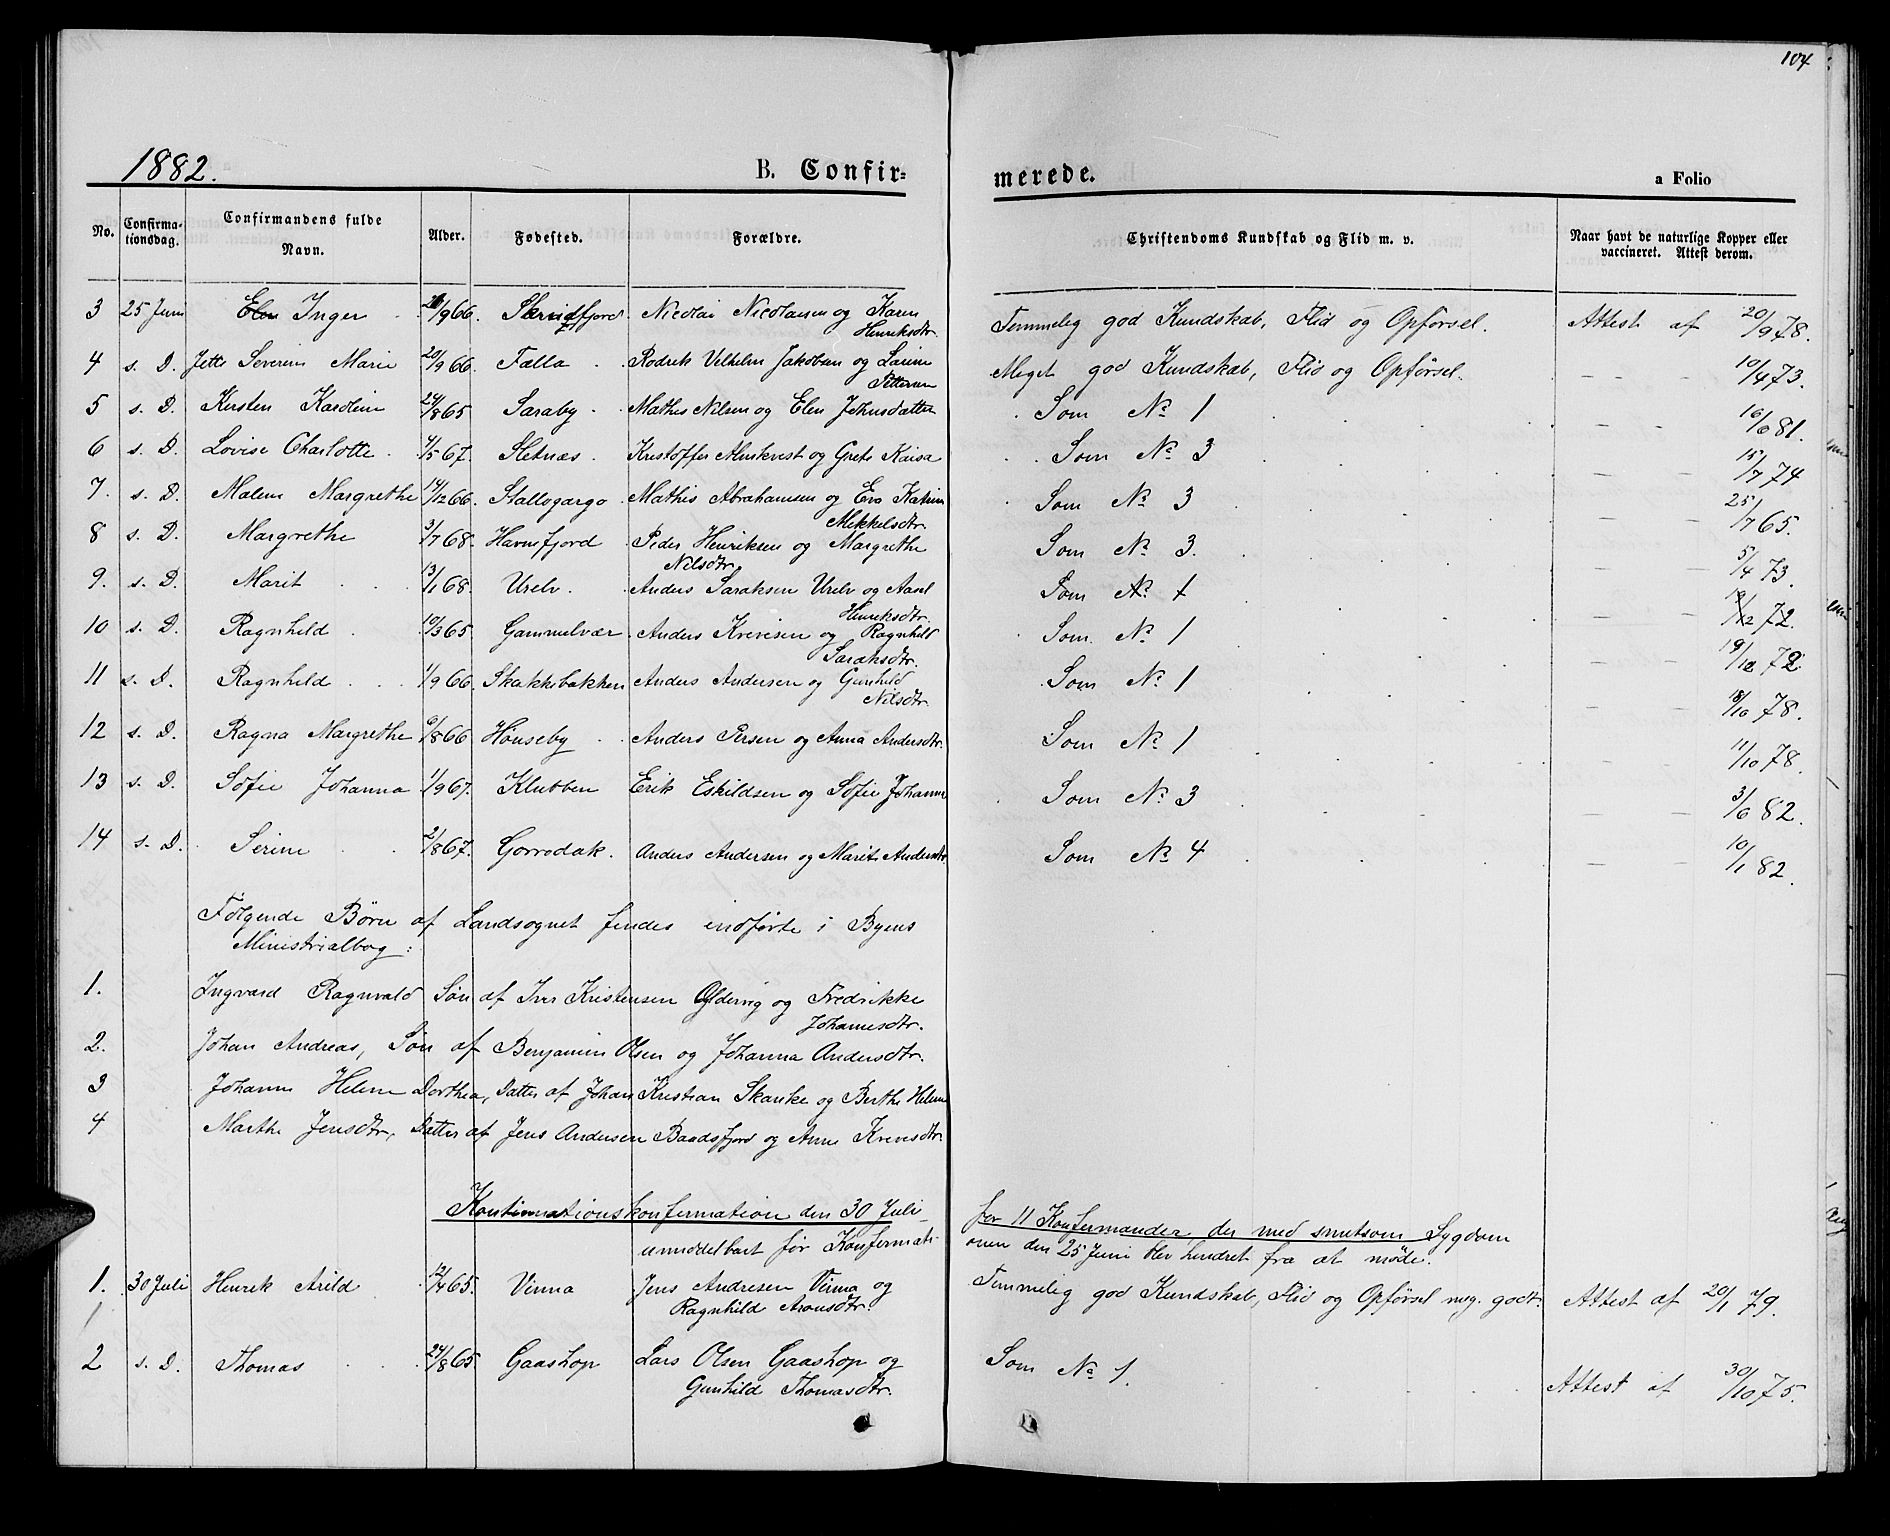 104
1882.
B. Confir=
merede.
a Folio
No. Confirma-tionsdag. Confirmandens fulde Navn. Alder. Fødested. Forældre. Christendoms Kundskab og Flid m. v. Naar havt de naturlige Kopper eller vaccineret. Attest derom.
3 25 Juni Inger /9 66. Nicolai Nicolaisen og Karen Henriksdtr. Temmelig god Kundskab, Flid og Opførsel. Attest af 20/9 78.
4 s. D. Jette Severine Marie 20/9 66. Falla Rodrik Vilhelm Jakobsen og Larine Pettersen Meget god Kundskab, Flid og Opførsel. — — 10/4 73.
5 s. D. Kirsten Karoline 24/8 65 Saraby Mathis Nilsen og Elen Johnsdatter Som No 1 — — 16/6 81.
6 s. D. Lovise Charlotte 4/5 67. Sletnæs Kristoffer Almkvist og Grete Kaisa Som No 3 — — 15/7 74
7. s. D. Malene Margrethe 14/12 66. Stallogargo Mathis Abrahamsen og Eva Katrine Mikkelsdtr. Som No 3 — — 25/7 65.
8 s. D. Margrethe 3/7 68. Havnefjord Peder Henriksen og Margrethe Nilsdtr. Som No 3. — — 5/4 73.
9. s. D. Marit 13/1 68. Urelv. Anders Saraksen Urelv og Aasel Henriksdtr. Som No 1 — — /12 72.
10 s. D. Ragnhild 10/3 65. Gammelvær Anders Krevesen og Ragnhild Saraksdtr. Som No 1 — — 19/12 72
11 s. D. Ragnhild 1/9 66. Skakkebakken Anders Andersen og Gunhild Nilsdtr. Som No 1 — — 18/10 78.
12 s. D. Ragna Margrethe 6/8 66 Hønseby Anders Persen og Anna Andersdtr. Som No 1 — — 11/10 78.
13 s. D. Sofie Johanna 1/9 67. Klubben Erik Eskildsen og Sofie Johanne Som No 3 — — 3/6 82.
14 s. D. Serine 2/8 67. Gorredak. Anders Andersen og Marit Andersdtr. Som No 4 — — 10/1 82.
Følgende Børn af Landsognet findes indførte i Byens
Ministrialbog:
1. Ingvard Ragnvald Søn af Iver Kristensen Oldervig og Fredrikke
Johannesdtr.
2. Johan Andreas, Søn af Benjamin Olsen og Johanna Andersdtr.
3 Johanne Helene Dorthea, Datter af Johan Kristian Skanke og Berthe Helene
4 Marthe Jensdtr, Datter af Jens Andersen Baadsfjord og Anne Krevesdtr.
Kontinuationskonfirmation den 30 Juli for 11 Konfirmander, der med smitsom Sygdom
umiddelbart før Konfirmationen den 25 Juni blev hindret fra at møde.
1. 30 Juli Henrik Arild 12/4 65. Vinna Jens Andresen Vinna og Ragnhild Aronsdtr. Temmelig god Kundskab, Flid og Opførsel meg. godt. Attest af 20/1 79.
2 s. D. Thomas 24/8 65 Gaashop Lars Olsen Gaashop og Gunhild Thomasdtr. Som No 1. Attest af 30/10 75.